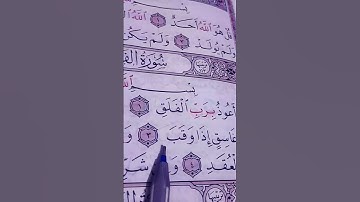 بِسْمِ
هُوَ اللَّهُ أَحَدٌ ۝١ اللَّهُ
وَلَمْ يُولَدْ ۝٣ وَلَمْ يَكُن
سُورَةُ
بِسْمِ
أَعُوذُ بِرَبِّ الْفَلَقِ ۝١
غَاسِقٍ إِذَا وَقَبَ ۝٣
الْعُقَدِ ۝٤